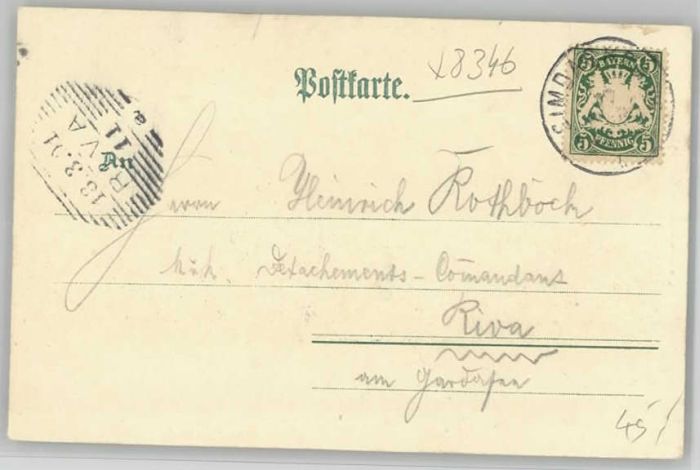 Postkarte.
x8346
5 BAYERN 5
5 PFENNIG 5
SIMBA
RIVA
18.3.01
11
An
Herrn Heinrich Rothböck
k.u.k. Detachements-Comandant
Riva
am Gardasee
45